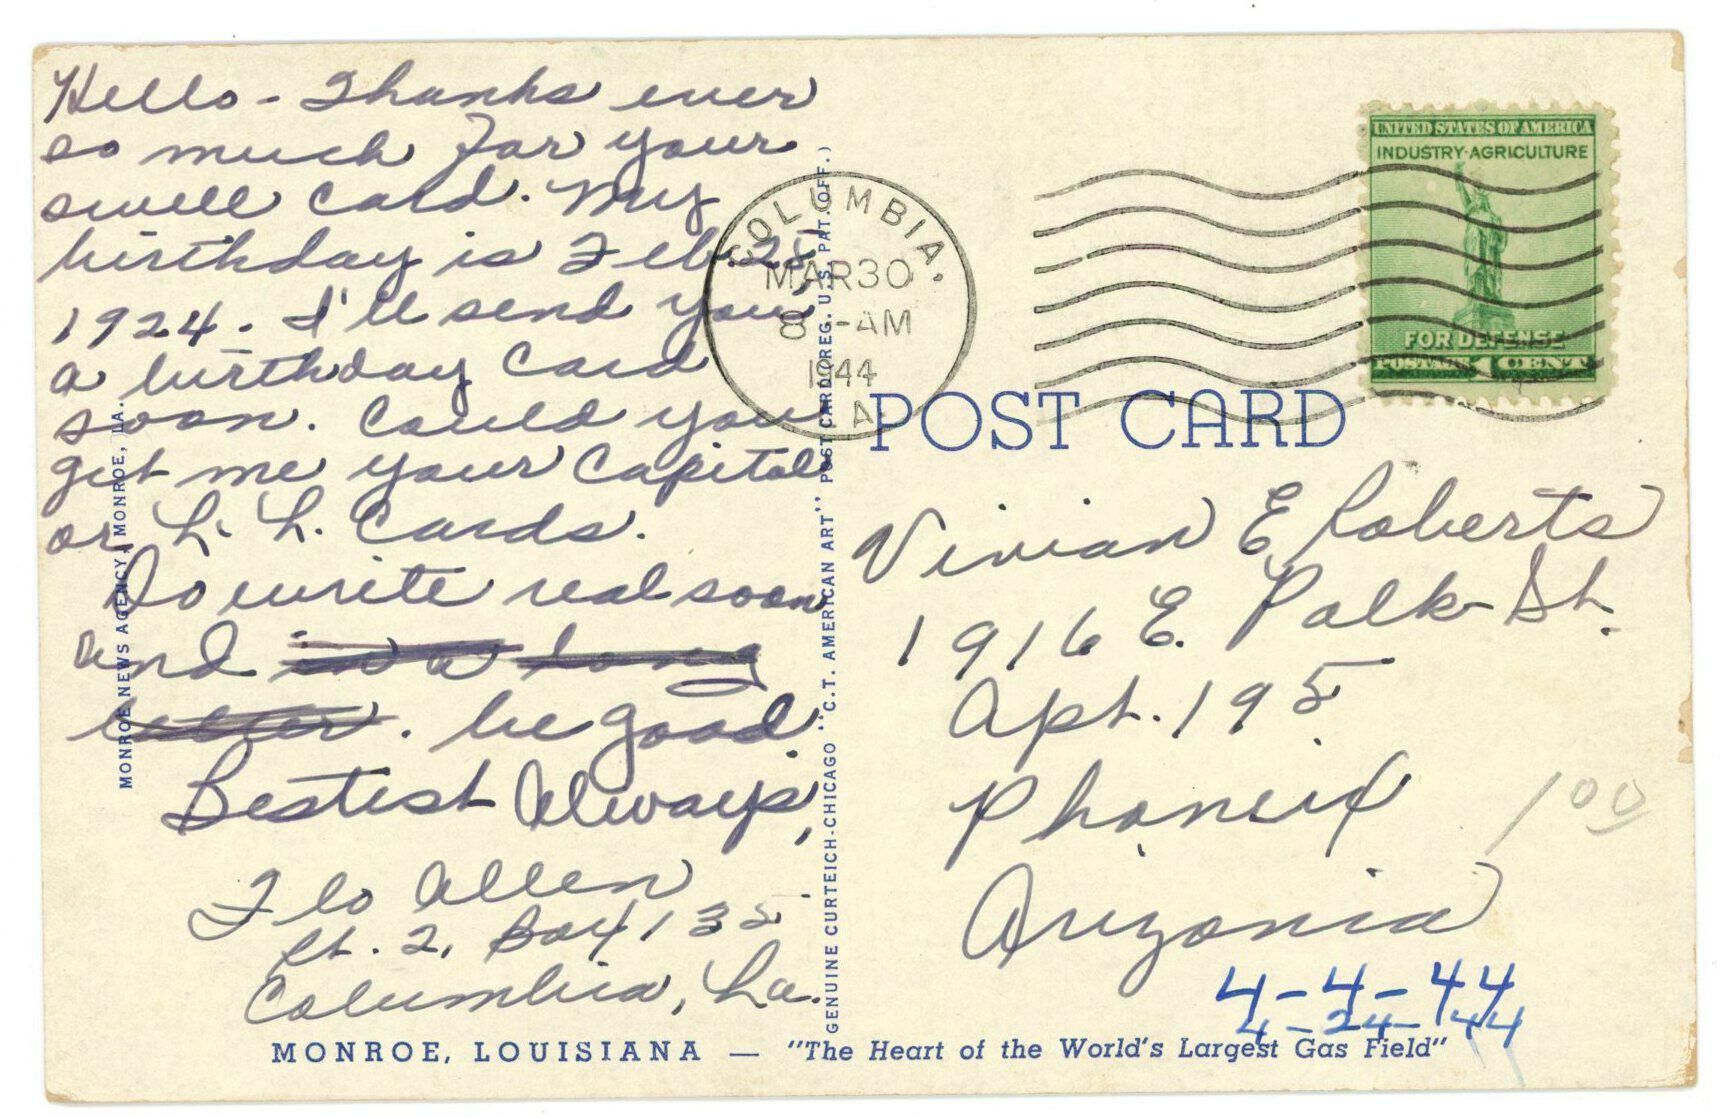 Hello - Thanks ever
so much for your
swell card. My
birthday is Feb. 25,
1924. I'll send you
a birthday card
soon. Could you
get me your Capitol
or L. L. Cards.
Do write real soon
and is a long
letter. be good
Bestest Always,
Flo Allen
Rt. 2, Box 135
Columbia, La.
MONROE NEWS AGENCY, MONROE, LA.
GENUINE CURTEICH-CHICAGO "C.T. AMERICAN ART" POST CARD (REG. U.S. PAT. OFF.)
COLUMBIA,
MAR 30
8 -AM
1944
A.
UNITED STATES OF AMERICA
INDUSTRY·AGRICULTURE
FOR DEFENSE
POSTAGE 1 CENT
POST CARD
Vivian E Roberts
1916 E. Polk St.
Apt. 195
Phoneix
Arizonia
1 00
4-4-44
4-24-44
MONROE, LOUISIANA — "The Heart of the World's Largest Gas Field"